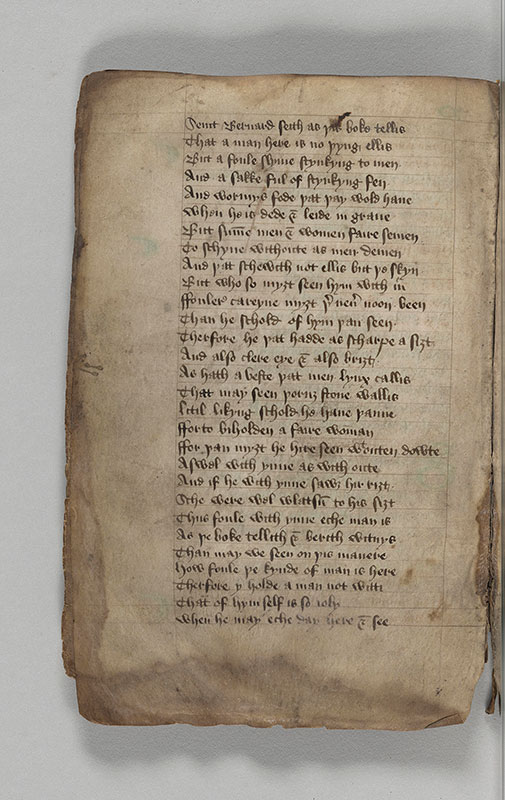 Seint Bernard seith as þis boke tellis
That a man here is no þyng ellis
But a foule slyme stynkyng to men
And a sakke ful of stynkyng fen
And wormys fode þat þay wold haue
When he is dede & leide in graue
But summe men & women faire semen
To schyne withoute as men demen
And þat schewith not ellis but þe skyn
But who so myȝt seen hym with in
ffouler careyne myȝt þer neuer noon been
Than he schold of hym þan seen
Therfore he þat hadde as scharpe a siȝt
And also clere eye & also briȝt
As hath a beste þat men lynx callis
That may seen þoruȝ stone wallis
litil likyng schold he haue þanne
fforto biholden a faire woman
ffor þan myȝt he hire seen wouten dowte
Aswel with ynne as with oute
And if he with ynne sawȝ hir riȝt
Sche were wel wlatsum to his siȝt
Thus foule with ynne eche man is
As þe boke tellith & berith witnys
Than may we seen on þis manere
how foule þe kynde of man is here
Therfore y holde a man not witti
That of hym self is so ioly
When he may eche day here & see